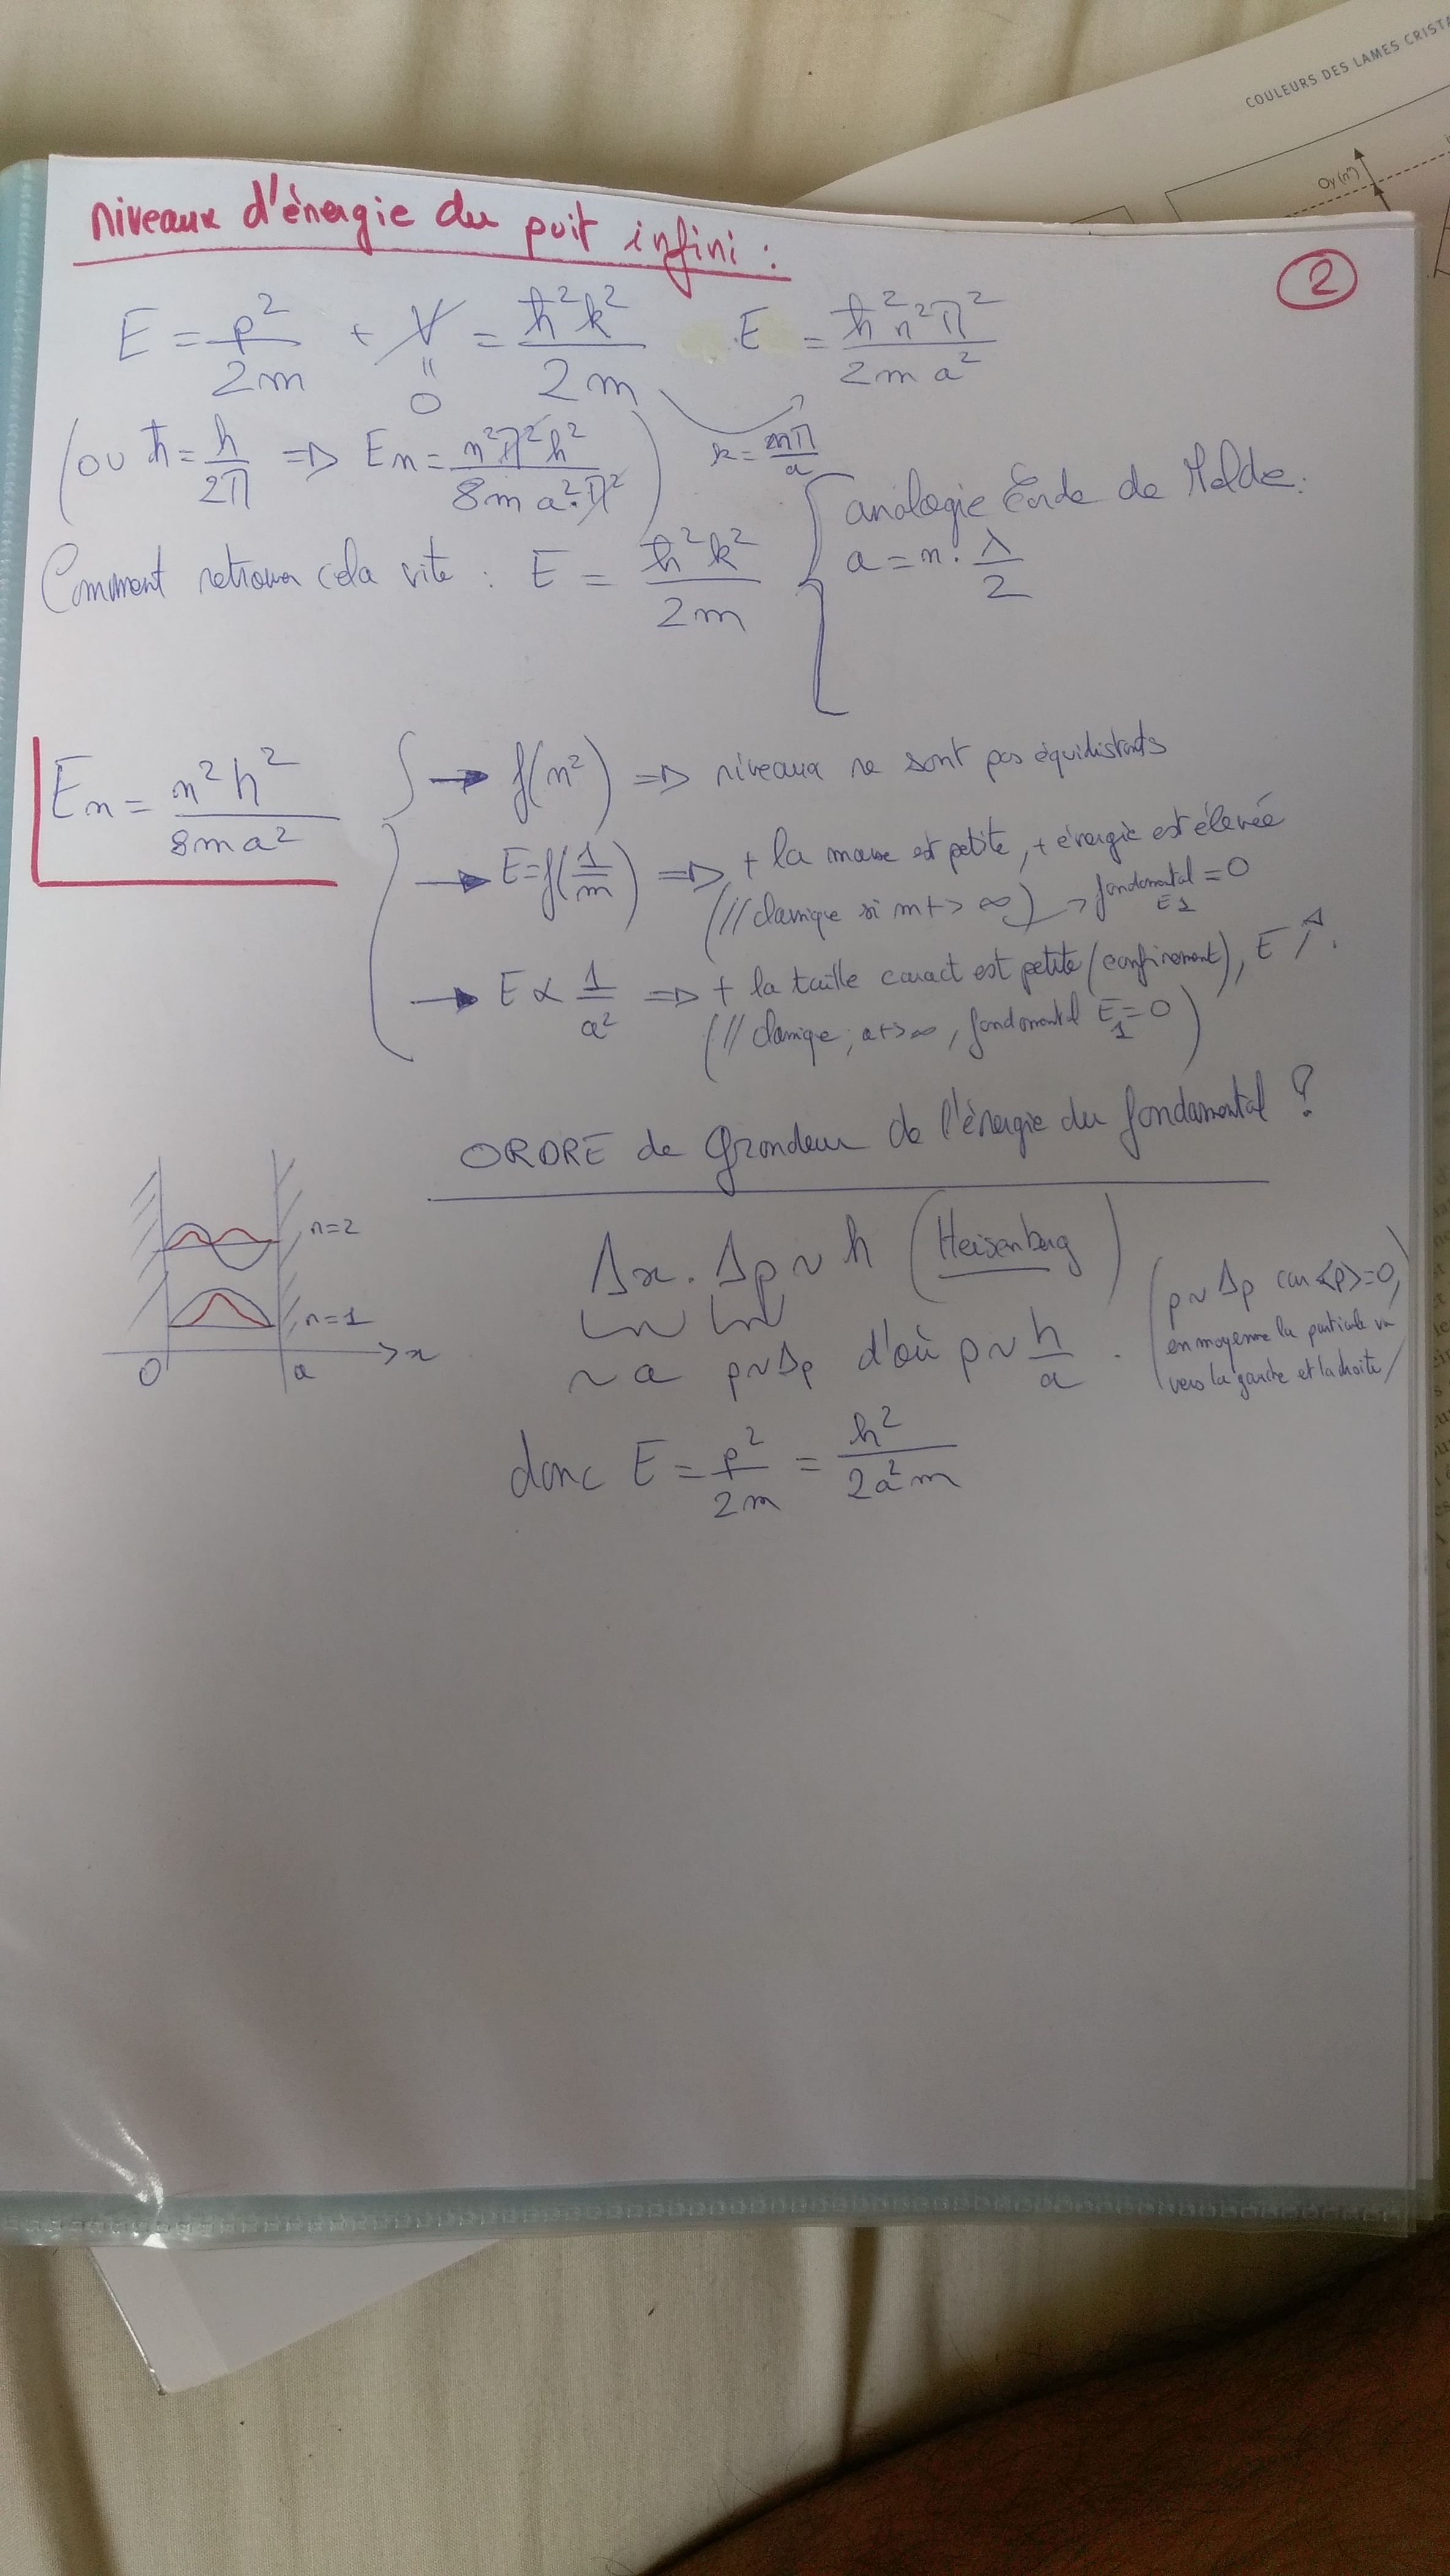 COULEURS DES LAMES CRISTA
Oy(n')
niveaux d'énergie du puit infini :
2
E = p²/2m + V = ħ²k²/2m E = ħ²n²π²/2ma²
"
0
(ou ħ = h/2π => En = n²π²h²/8ma².π²) k = nπ/a
Comment retrouver cela vite : E = ħ²k²/2m { analogie Corde de Melde.
a = n. λ/2
En = n²h²/8ma² { → f(n²) => niveaux ne sont pas équidistants
→ E=f(1/m) => + la masse est petite, + énergie est élevée
(// classique si m+> ∞) → fondamental E1 = 0
→ E ∝ 1/a² => + la taille caract est petite (confinement), E ↗.
(// classique, a+>∞, fondamental E1=0)
ORDRE de Grandeur de l'énergie du fondamental ?
n=2
n=1
0 a > x
Δx. Δp ~ h (Heisenberg)
~ a p~Δp d'où p ~ h/a .
(p ~ Δp car <p>=0,
en moyenne la particule va
vers la gauche et la droite)
donc E = p²/2m = h²/2a²m